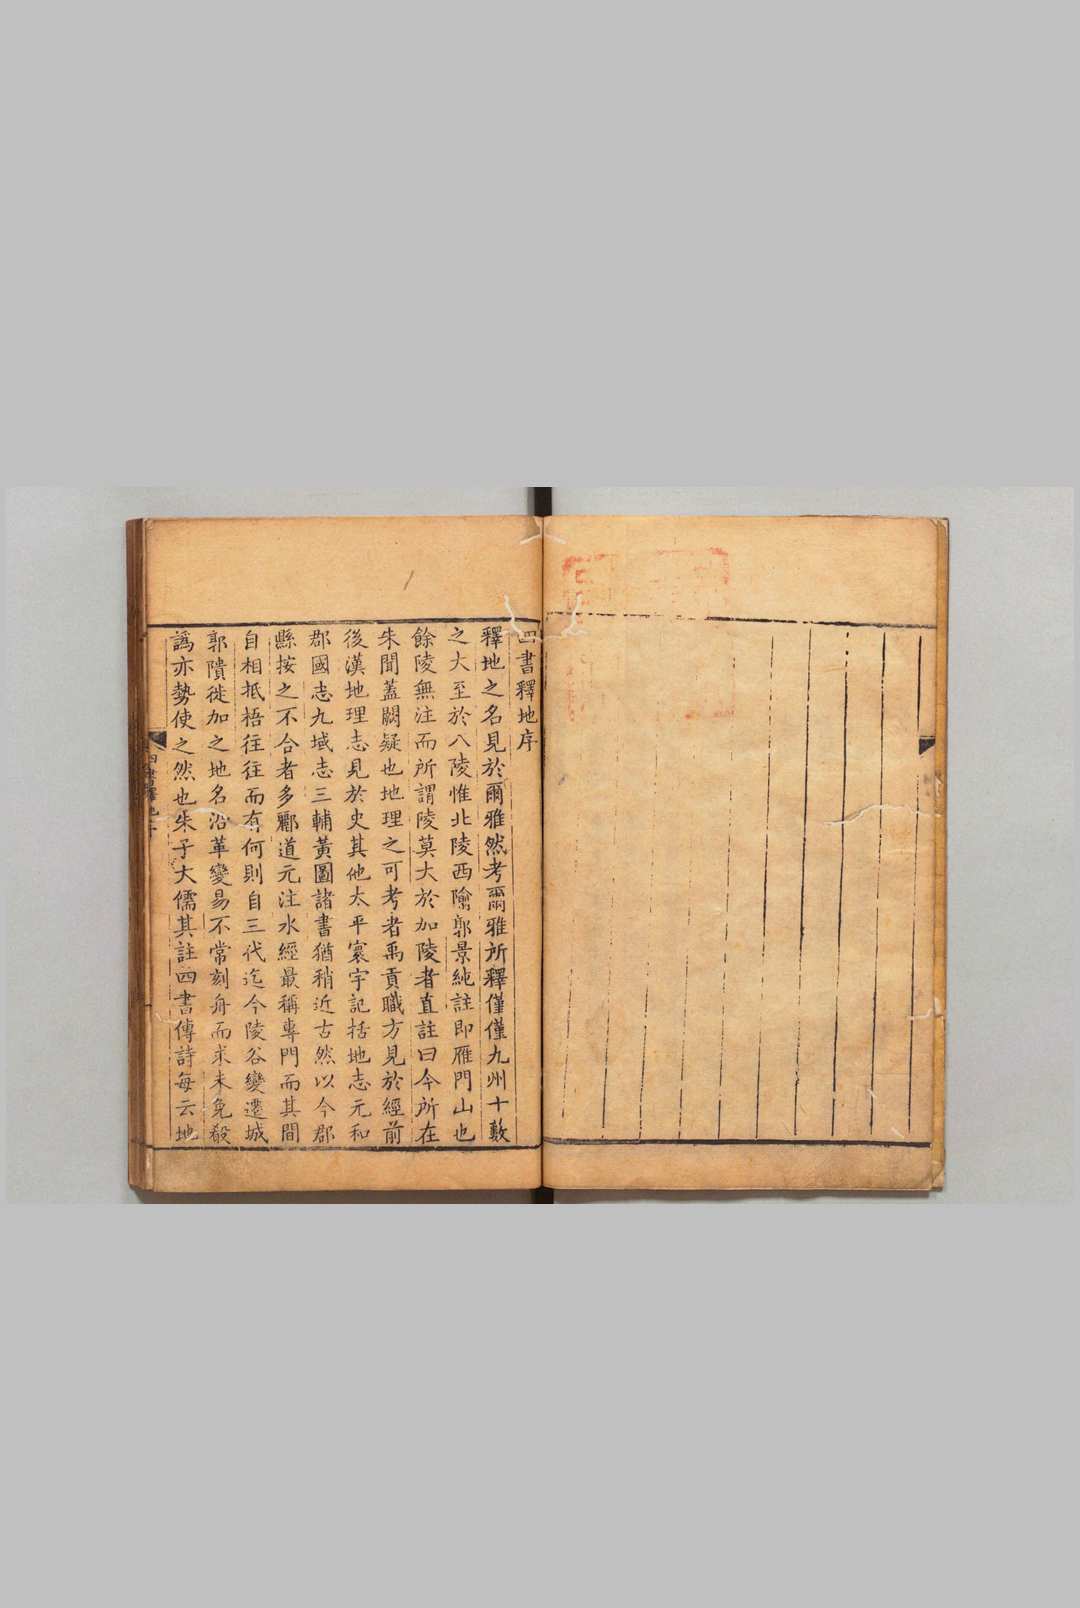 四書釋地序
釋地之名見於爾雅然考爾雅所釋僅僅九州十藪
之大至於八陵惟北陵西隃郭景純註即雁門山也
餘陵無注而所謂陵莫大於加陵者直註曰今所在
未聞蓋闕疑也地理之可考者禹貢職方見於經前
後漢地理志見於史其他太平寰宇記括地志元和
郡國志九域志三輔黃圖諸書猶稍近古然以今郡
縣按之不合者多酈道元注水經最稱專門而其間
自相抵梧往往而有何則自三代迄今陵谷變遷城
郭隤徙加之地名沿革變易不常刻舟而求未免殽
譌亦勢使之然也朱子大儒其註四書傳詩每云地
四書釋地序